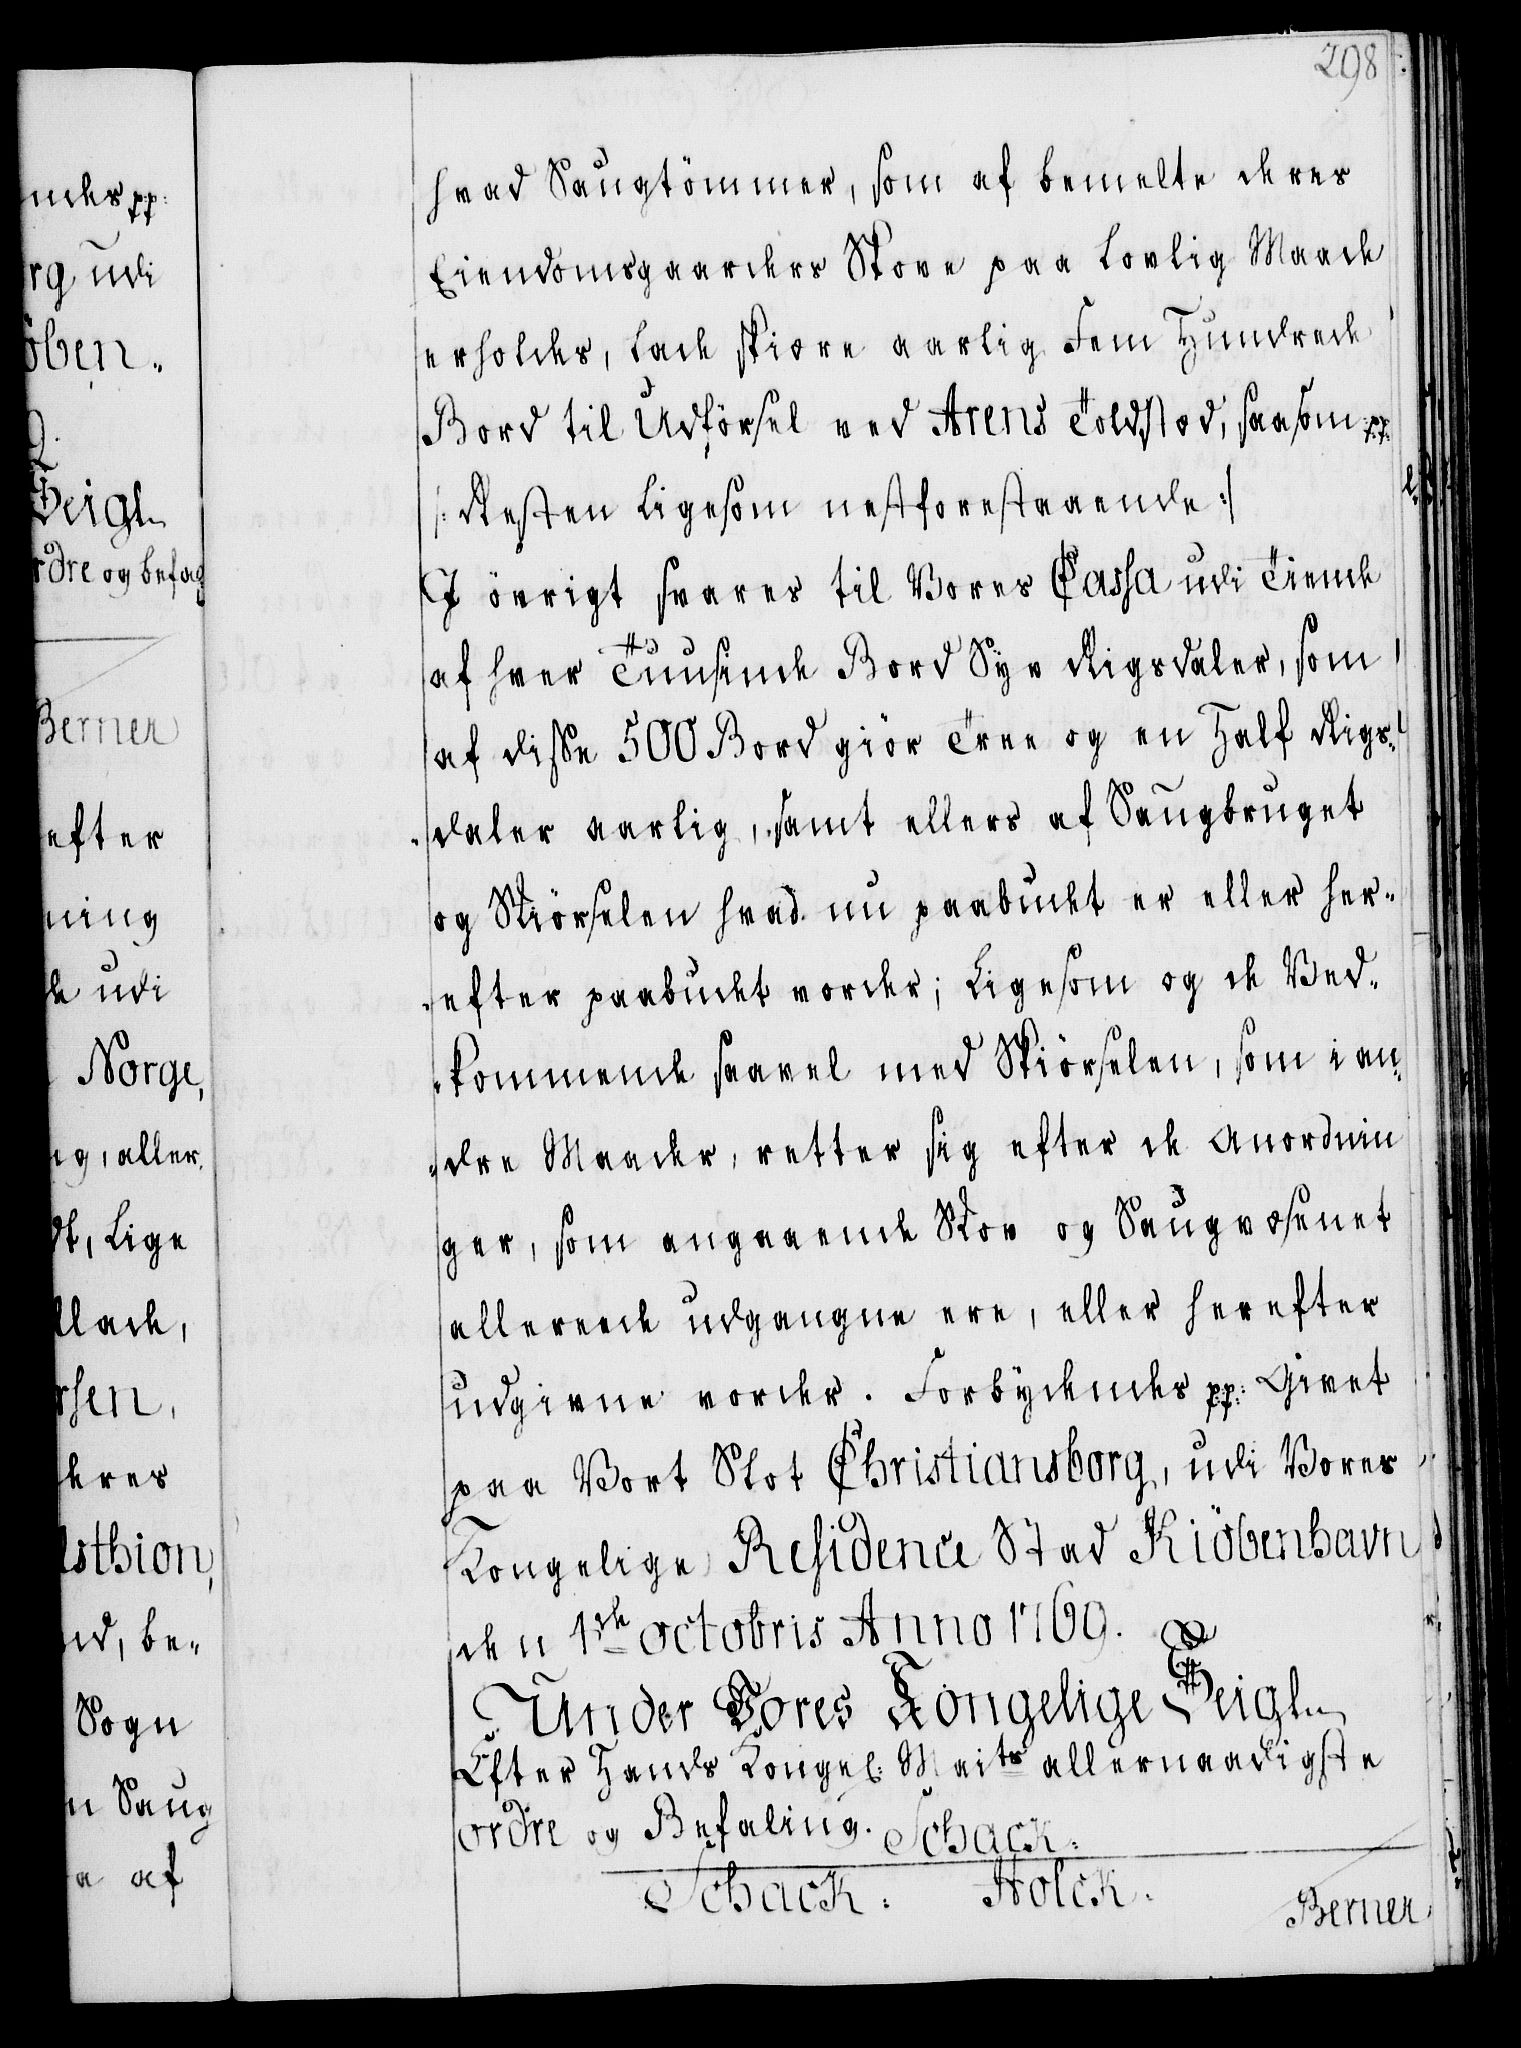 298
hvad Saugtömmer, som af bemelte deres
Eiendomsgaarders Skove paa Lovlig Maade
erholdes, lade skiære aarlig Fem Hundrede
Bord til Udförsel ved Arens Toldstæd, saasom pp.
/: Resten Ligesom nestforestaaende :/
I övrigt svares til Vores Cassa udi Tiende
af hver Tuusinde Bord Syv Rigsdaler, som
af disse 500 Bord giör Tree og en Half Rigs-
-daler aarlig, samt ellers af Saugbruget
og Skiörselen hvad nu paabudet er eller her-
-efter paabudet vorder; Ligesom og de Ved-
-kommende saavel med Skiörselen, som i an-
-dre Maader, retter sig efter de Anordnin
ger, som angaaende Skov og Saugvæsenet
allereede udgangne ere, eller herefter
udgivne vorder. Forbydendes pp: Givet
paa Vort Slot Christiansborg, udi Vores
Kongelige Residence Stad Kiöbenhavn
den 1de octobris Anno 1769.
Under Vores Kongelige Seigl
Efter Hands Kongel: Maits allernaadigste
ordre og Befaling. Schack.
Schack. Holck.
Berner
ndes pp:
rg udi
öben-
9.
Seigl
rdre og befag
Berner
efter
ning
de udi
Norge,
ng, aller
dt, Lige
llade,
rsen,
deres
lsthion,
nd, be-
Sogn
n Saug
a af